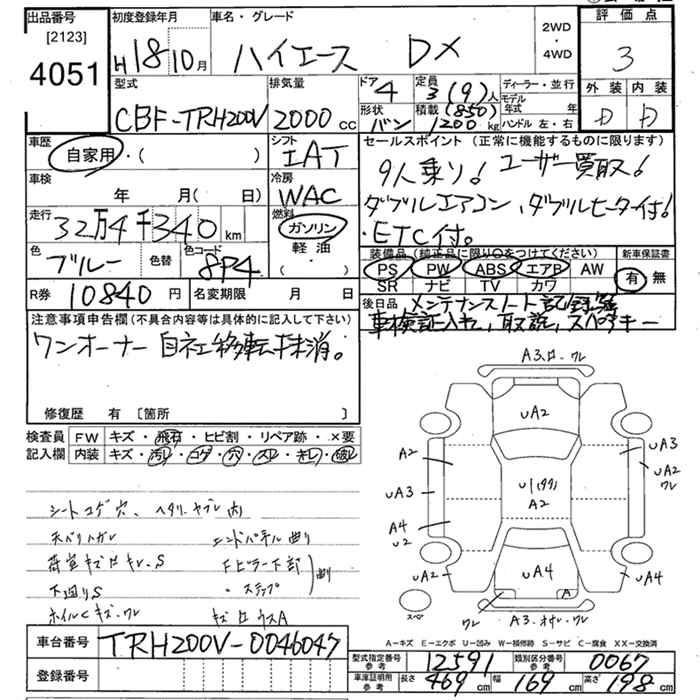 出品番号
[2123]
4051
初度登録年月
H18年10月
車名・グレード
ハイエース DX
2WD
・
4WD
評価点
3
外装 内装
D D
型式
CBF-TRH200V
排気量
2000cc
ドア
4
定員
3(9)人
形状
バン
積載 (850)
1200kg
ディーラー・並行
モデル年式 年
ハンドル 左・右
車歴
自家用・( )
シフト
IAT
車検
年 月( 日)
冷房
WAC
走行
32万4千340km
燃料
ガソリン
軽油
・( )
色
ブルー
色替
色コード
8P4
R券
10840円
名変期限 月 日
セールスポイント(正常に機能するものに限ります)
9人乗り! ユーザー買取!
ダブルエアコン、ダブルヒーター付!
・ETC付。
装備品(純正品に限り○をつけてください)
PS PW ABS エアB AW
SR ナビ TV カワ
新車保証書
有・無
後日品 メンテナンスノート記録簿
車検証入れ、取説、スペアキー
注意事項申告欄(不具合内容等は具体的に記入して下さい)
ワンオーナー 自社移転抹消。
修復歴 有 [箇所 ]
検査員
記入欄
FW キズ・飛石・ヒビ割・リペア跡・×要
内装 キズ・汚レ・コゲ・穴・スレ・キレ・破レ
シートコゲ穴、ヘタリ、ヤブレ 内
天バリハガレ エンドパネル曲り
荷室キズ凹キレ、S Fピラー下部
下廻りS ・ステップ 曲り
ホイルCキズ・ワレ キズ凹ウスA
A3.凹.ワレ
UA2
A2
UA3
A4
U2
UA2
UA3
UA2
ワレ
UA4
U1(タタ)
A2
UA4
A
ワレ
A3.オサレ.ワレ
スペア
A=キズ E=エクボ U=凹み W=補修跡 S=サビ C=腐食 XX=交換済
車台番号 TRH200V-0046047
登録番号
型式指定番号
参考
12591
類別区分番号
参考
0067
車庫証明用
参考
長さ 469cm 幅 169cm 高さ 198cm